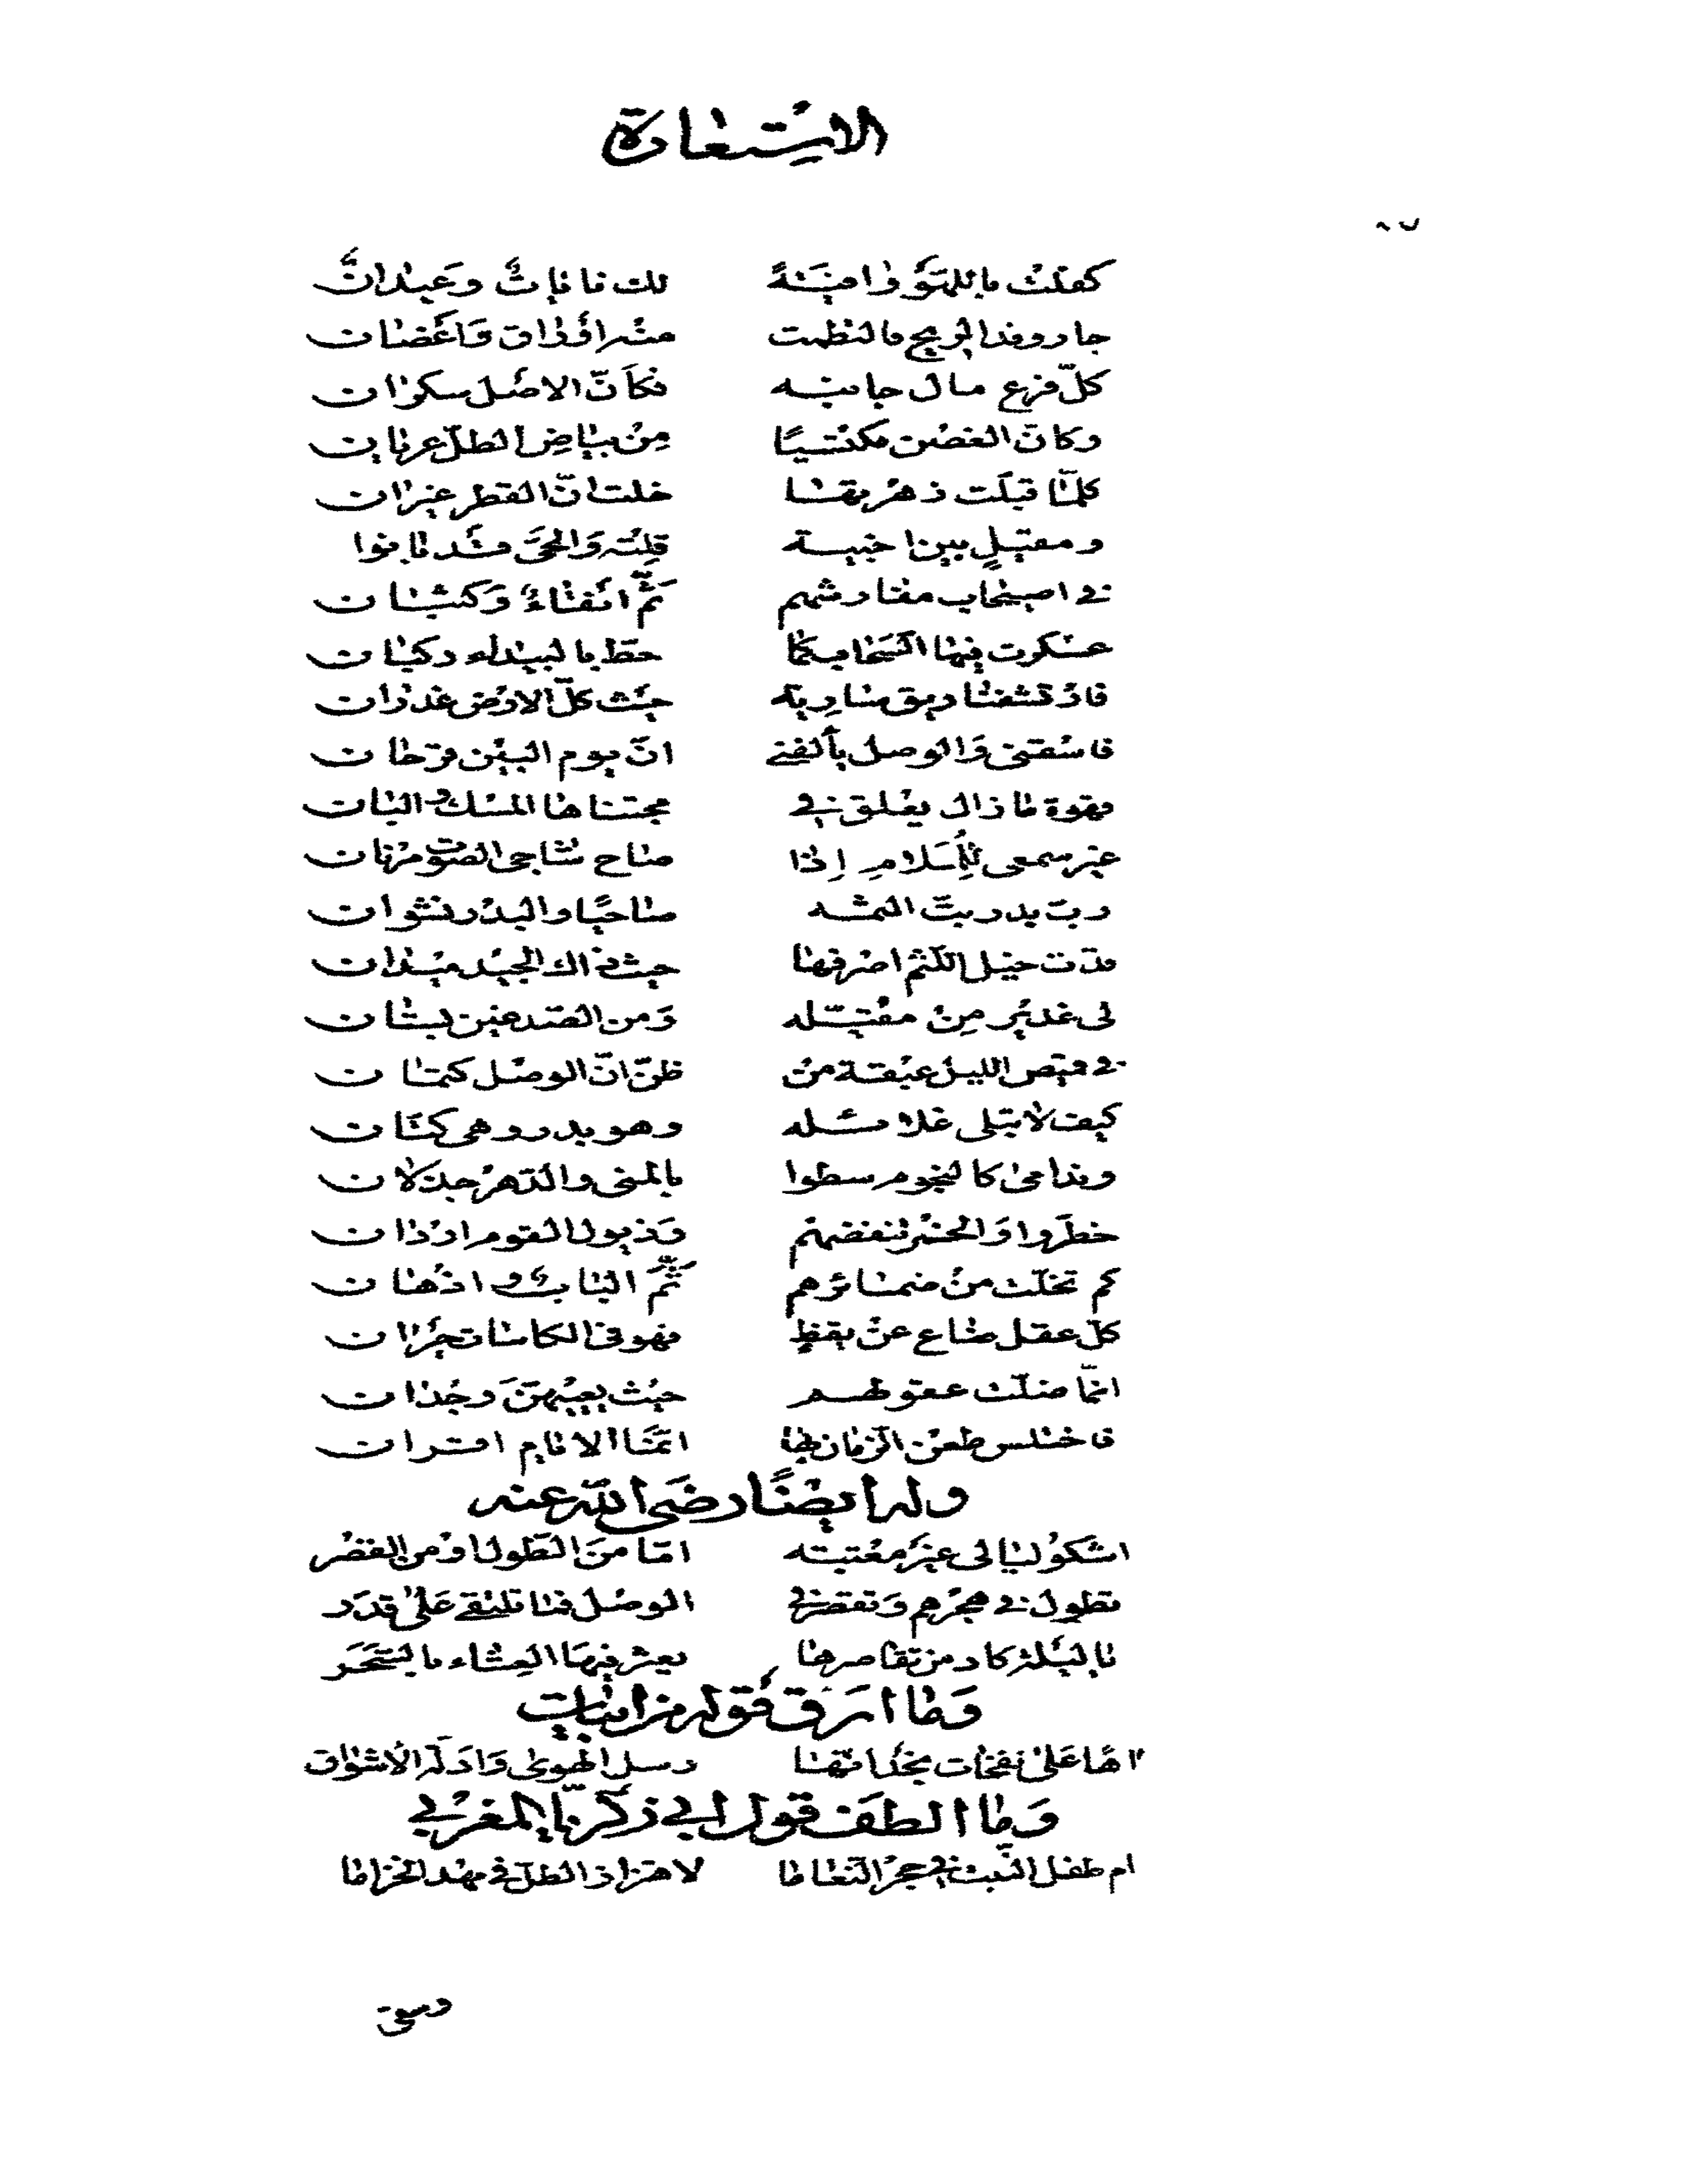 الاستعارة
كفلت باللهو وافية لك نايات وعيدان
جاد وفد الريح فالتطمت منه اوراق وأغصان
كلّ فرع مال جانبه فكأنّ الاصل سكران
وكانّ الغصن مكتسيًا مِنْ بياض الطلّ عريان
كلّما قبلت زهرتها خلت انّ القطر غيران
ومقيلٍ بين اخبية قلته وَالحيّ قد بانوا
في اصيحاب مفارشهم ثَمّ انقاءٌ وكثبان
عسكرت فيها السّحاب كما حطّ بالبيداء ركبان
فارتشفنا ريق سارية حيث كلّ الارض غدران
فاسقنى وَالوصل يألفني انّ يوم البين قرحان
قهوة ما زال يعلق في مجتناها المسك والبان
غير سمعى للملام إذا صاح شاجى الصوت مرنان
ربّ بدر بتّ الثمه صاحيًا والبدر نشوان
مدّت خيل اللّثم اصرفها حيث ذاك الجيد ميدان
لى غدير مِنْ مقبّله وَمن الصّدغين بستان
في قميص الليل عبقة من ظنّ انّ الوصل كتمان
كيف لا يبلى غلائله وهو بدر وهى كتّان
وندامى كالنجوم سطوا بالمنى والدّهر جذلان
خطروا وَالخمر تنفضهم وَذيول القوم اردان
كم تخلّت من ضمائرهم ثَمّ الباب واذهان
كلّ عقل ضاع عن يقظٍ فهو في الكاسات حيران
انّما ضلّت عقولهم حيث يعييهنّ وجدان
فاختلس طعن الزمان بها انّما الايام اقران
وله أيضًا رضى الله عنه
اشكو ليالى غير معتبته امّا منَ الطّول اومن القصر
تطول في هجرهم وَتقصر في الوصل فما نلتقى عَلى قدر
يا ليلة كاد من تقاصرها يعثر فيها العشاء بالسّحر
وَما ارق قوله من ابيات
اهًا عَلى نفحات نجد انّها رسل الهوى وَادلّة الاشواق
وَما الطف قول ابي زكريّا المغربي
ام طفل النّبت في حجر النعاما لاهتزاز الطلّ في مهد الخزاما
وسقى